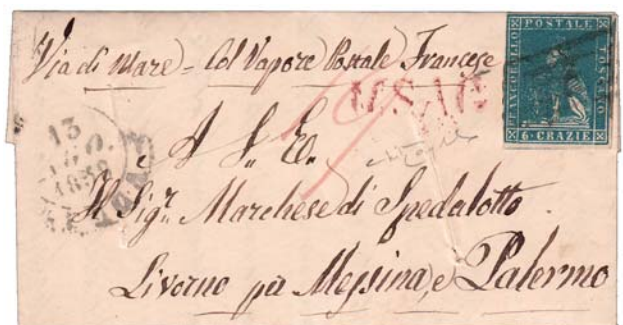 Via di Mare = Col Vapore Postale Francese
FRANCOBOLLO
POSTALE
TOSCANO
6·CRAZIE
13
1858
A S. E.
Il Sigr. Marchese di Spedalotto
Livorno per Messina, e Palermo